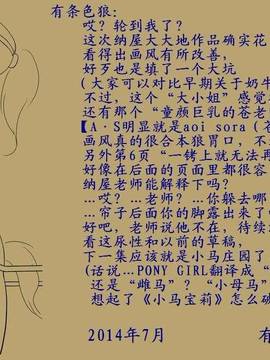 有条色狼：
哎？轮到我了？
这次纳屋大大地作品确实花
看得出画风有所改善，
好歹也是填了一个大坑
（大家可以对比早期关于奶牛
不过，这个“大小姐”感觉
还有那个“童颜巨乳的苍老
【A·S明显就是aoi sora（苍
画风真的很合本狼胃口，不
另外第6页“一铐上就无法再
好像在后面的页面里都很容
纳屋老师能解释下吗？
…哎？…老师？…你躲去哪
…帘子后面你的脚露出来了
好吧，老师说他不在，待续
看这尿性和以前的草稿，
下一集应该就是小马庄园了
（话说…PONY GIRL翻译成“
还是“雌马”？ “小母马”
想起了《小马宝莉》怎么破
2014年7月
有